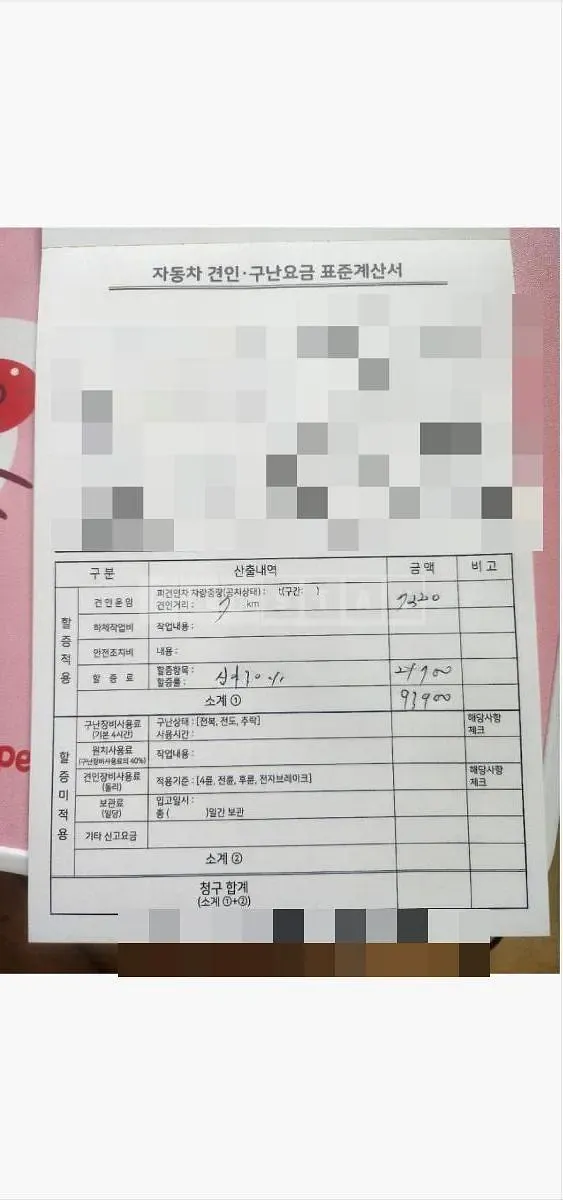 자동차 견인·구난요금 표준계산서
구분 산출내역 금액 비고
할증적용
견인운임 피견인차 차량중량(공차상태) : t(구간: )
견인거리 : 7 km
하체작업비 작업내용 :
안전조치비 내용 :
할증료 할증항목 :
할증률 : 30%
소계 ① 93900
할증미적용
구난장비사용료 구난상태 : [전복, 전도, 추락] 해당사항
(기본 4시간) 사용시간 : 체크
원치사용료 작업내용 :
(구난장비사용료의 40%)
견인장비사용료 적용기준 : [4륜, 전륜, 후륜, 전자브레이크] 해당사항
(돌리) 체크
보관료 입고일시 :
(일당) 총 ( )일간 보관
기타 신고요금
소계 ②
청구 합계
(소계 ①+②)
pe